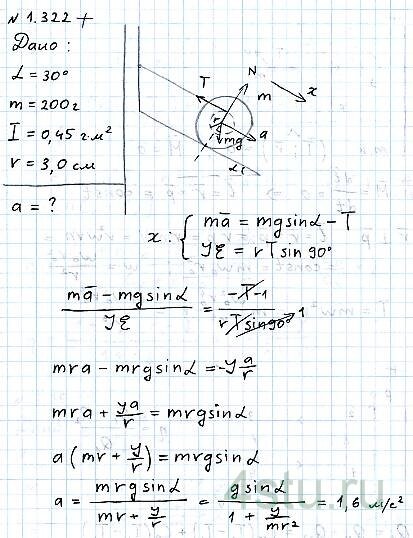 N 1.322 +
Дано:
α = 30°
m = 200г
I = 0,45 г·м²
r = 3,0 см
a = ?
N
T
m
x
r
a
mg
α
x: { ma̅ = mg sinα - T
Iξ = rT sin 90°
(ma̅ - mg sinα) / (Iξ) = (-T·1) / (rT sin 90°) 1
mra - mrg sinα = -I a/r
mra + Ia/r = mrg sinα
a (mr + I/r) = mrg sinα
a = (mrg sinα) / (mr + I/r) = (g sinα) / (1 + I/mr²) = 1,6 м/с²
4stu.ru